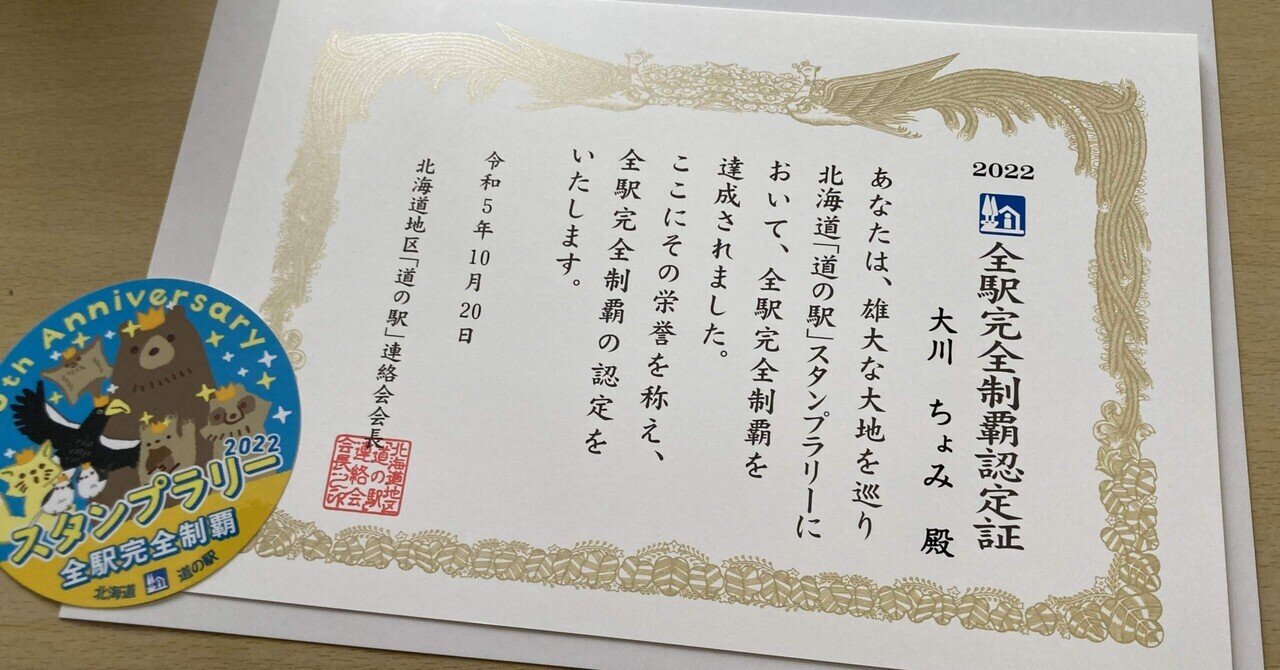 2022
全駅完全制覇認定証
大川 ちょみ 殿
あなたは、雄大な大地を巡り
北海道「道の駅」スタンプラリーに
おいて、全駅完全制覇を
達成されました。
ここにその栄誉を称え、
全駅完全制覇の認定を
いたします。
令和5年10月20日
北海道地区「道の駅」連絡会会長
北海道地区
「道の駅」
連絡会
会長之印
th Anniversary
2022
スタンプラリー
全駅完全制覇
北海道 道の駅